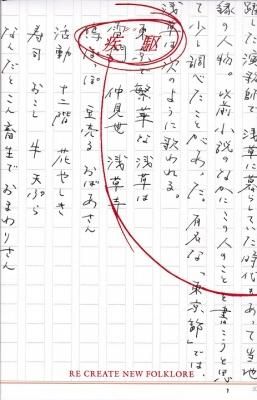 躍した演歌師で浅草に暮らしていた時代もあって当地
縁の人物。以前小説のなかにこの人のことを書こうと思っ
て少し調べたことがあった。有名な「東京節」では、
浅草は次のように歌われる。
東京で繁華な浅草は
雷門 仲見世 浅草寺
鳩ぽっぽ 豆売る おばあさん
活動 十二階 花やしき
寿司 おこし 牛 天ぷら
なんだとこん畜生で おまわりさん
疾駆
RE CREATE NEW FOLKLORE